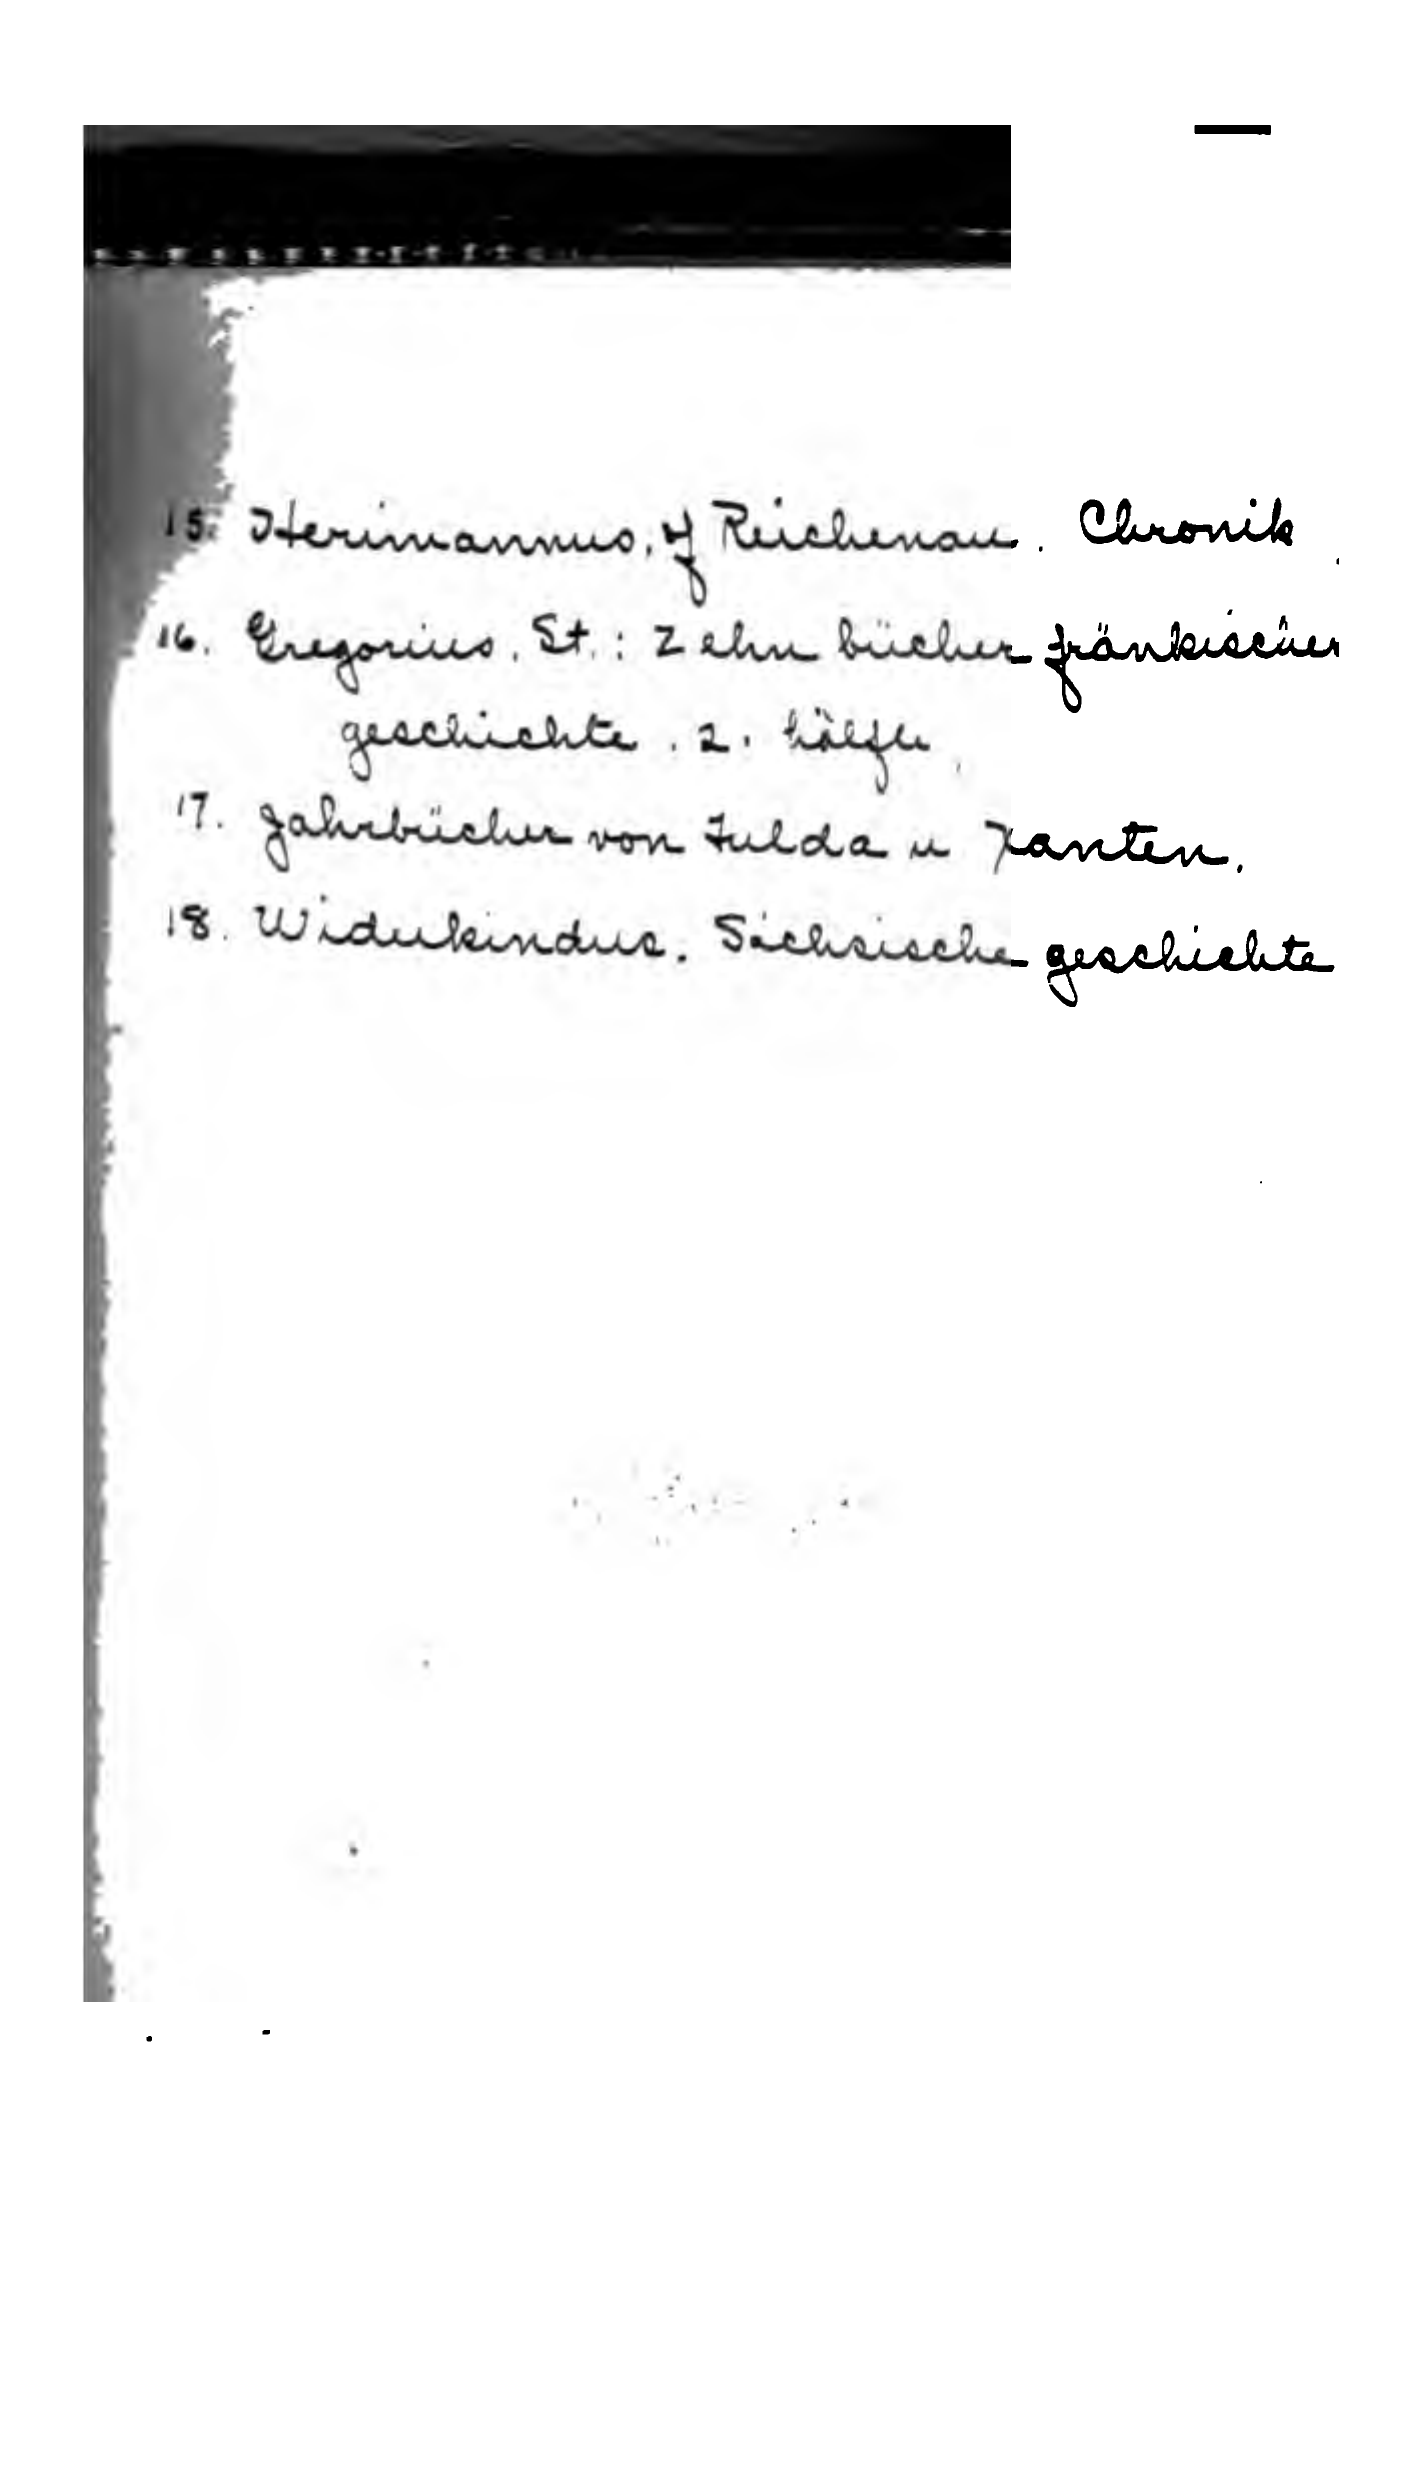 15. Herimannus, of Reichenau. Chronik.
16. Gregorius, St.: Zehn bücher fränkischer
geschichte. 2. hälfte.
17. Jahrbücher von Fulda u Xanten.
18. Widukindus. Sächsische geschichte